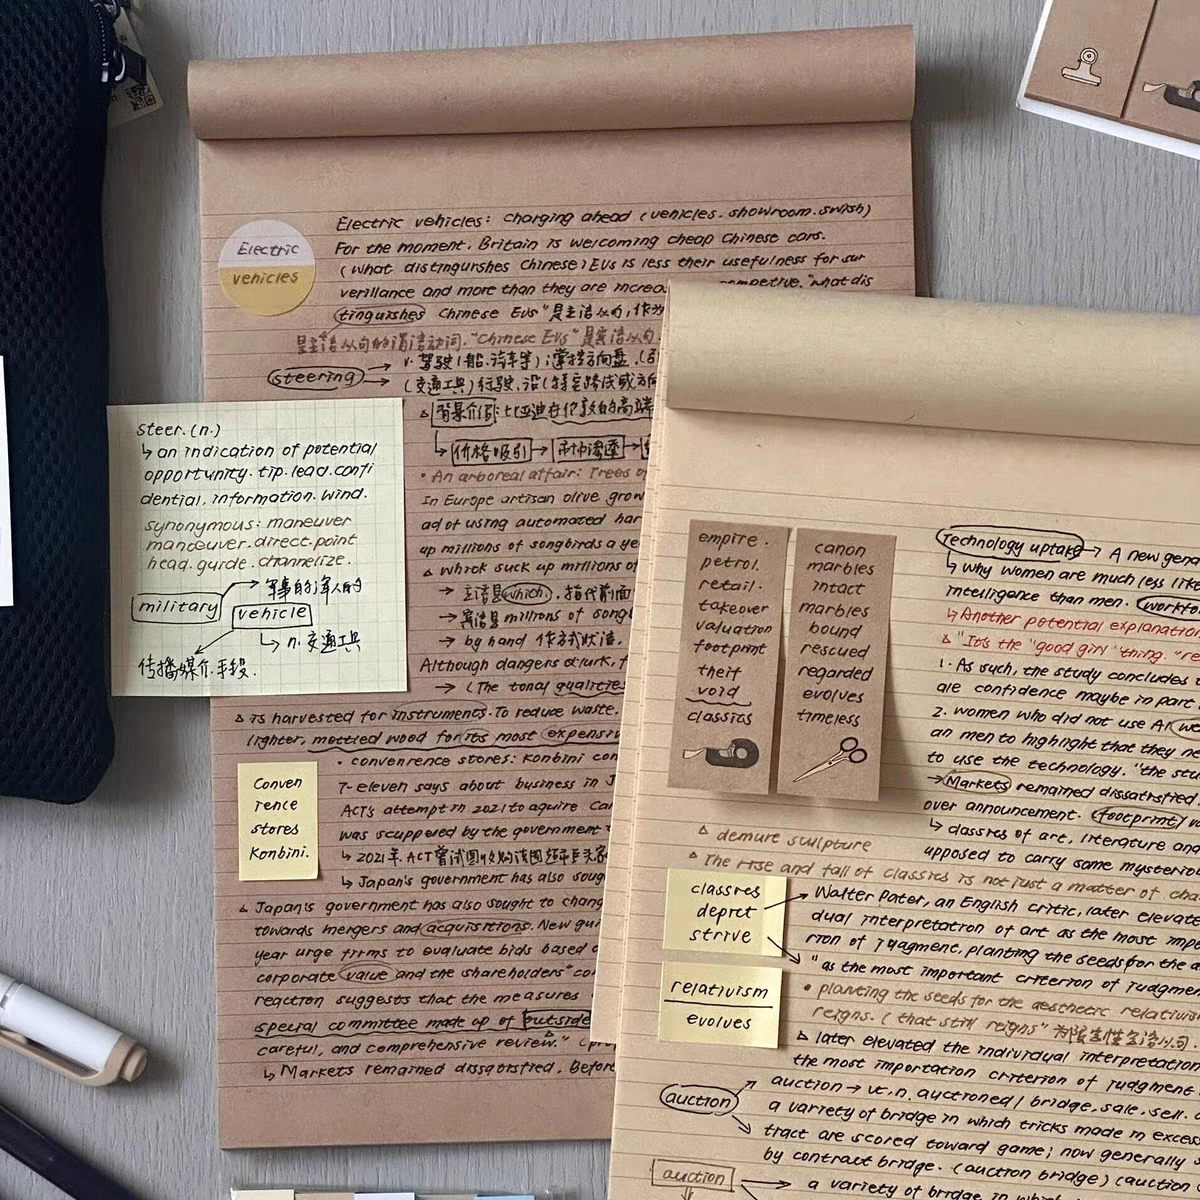 Electric
vehicles
Electric vehicles: charging ahead (vehicles. showroom. swish)
For the moment. Britain is welcoming cheap Chinese cars.
(what distingurshes Chinese) EVs is less their usefulness for sur
verillance and more than they are increa competive. "what dis
tinguishes Chinese EVs" 是主语从句,作为
是主语从句的谓语动词. "Chinese EVs" 是宾语从句
steering → v. 驾驶(船.汽车等);掌控方向盘.
→ (交通工具)行驶,沿(特定路线或方向
△ 背景介绍: 比亚迪在伦敦的高端
价格吸引 → 市场渗透 →
• An arboreal affair: Trees
In Europe artisan olive grow
ad of using automated har
up millions of songbirds a ye
△ which suck up millions of
→ 主语是 which, 指代前面
→ 宾语是 millions of song
→ by hand 作方式状语.
Although dangers lurk,
→ (The tonal qualities
△ is harvested for instruments. To reduce waste,
lighter, mottled wood for its most expensiv
• convenrence stores: Konbini con
7-eleven says about business in J
ACT's attempt in 2021 to aquire Can
was scuppered by the government
↳ 2021年. ACT曾试图收购该图超市巨头
↳ Japan's government has also soug
△ Japan's government has also sought to chang
towards mergers and acquisitions. New gui
year urge firms to evaluate bids based
corporate value and the shareholders" co
reaction suggests that the measures
special committee made up of outside
careful, and comprehensive review."
↳ Markets remained dissatisfied. Before
steer. (n.)
↳ an indication of potential
opportunity. tip. lead. confi
dential. information. wind.
synonymous: maneuver
manœuver. direct. point
head. guide. channelize.
military → 军事的军人的
vehicle
↳ n. 交通工具
传播媒介.手段.
Conven
rence
stores
Konbini.
empire.
petrol.
retail.
takeover
valuation
footprint
theif
void
classics
canon
marbles
intact
marbles
bound
rescued
regarded
evolves
timeless
Technology uptake → A new gene
↳ why women are much less like
intelligence than men. workfo
↳ Another potential explanation
△ "It's the "good girl" thing. "re
1. As such, the study concludes
ale confidence maybe in part
2. women who did not use AI we
an men to highlight that they ne
to use the technology. "the stu
→ Markets remained dissatisfied
over announcement. (footprint)
↳ classics of art, literature and
upposed to carry some mysteriou
△ demure sculpture
△ The rise and fall of classics is not just a matter of cha
classres
depict
strive
Walter Pater, an English critic, later elevate
dual interpretation of art as the most impo
rion of judgment, planting the seeds for the a
"as the most important criterion of judgmen
relativism
evolves
• planting the seeds for the aesthetic relativis
reigns. (that still reigns" 为限定性定语从句.
△ later elevated the individual interpretation
the most importation criterion of judgment
auction → auction → vt.n. auctioned / bridge. sale. sell.
a variety of bridge in which tricks made in excess
→ tract are scored toward game; now generally s
by contract bridge. (auction bridge) (auction
auction → a variety of bridge in which